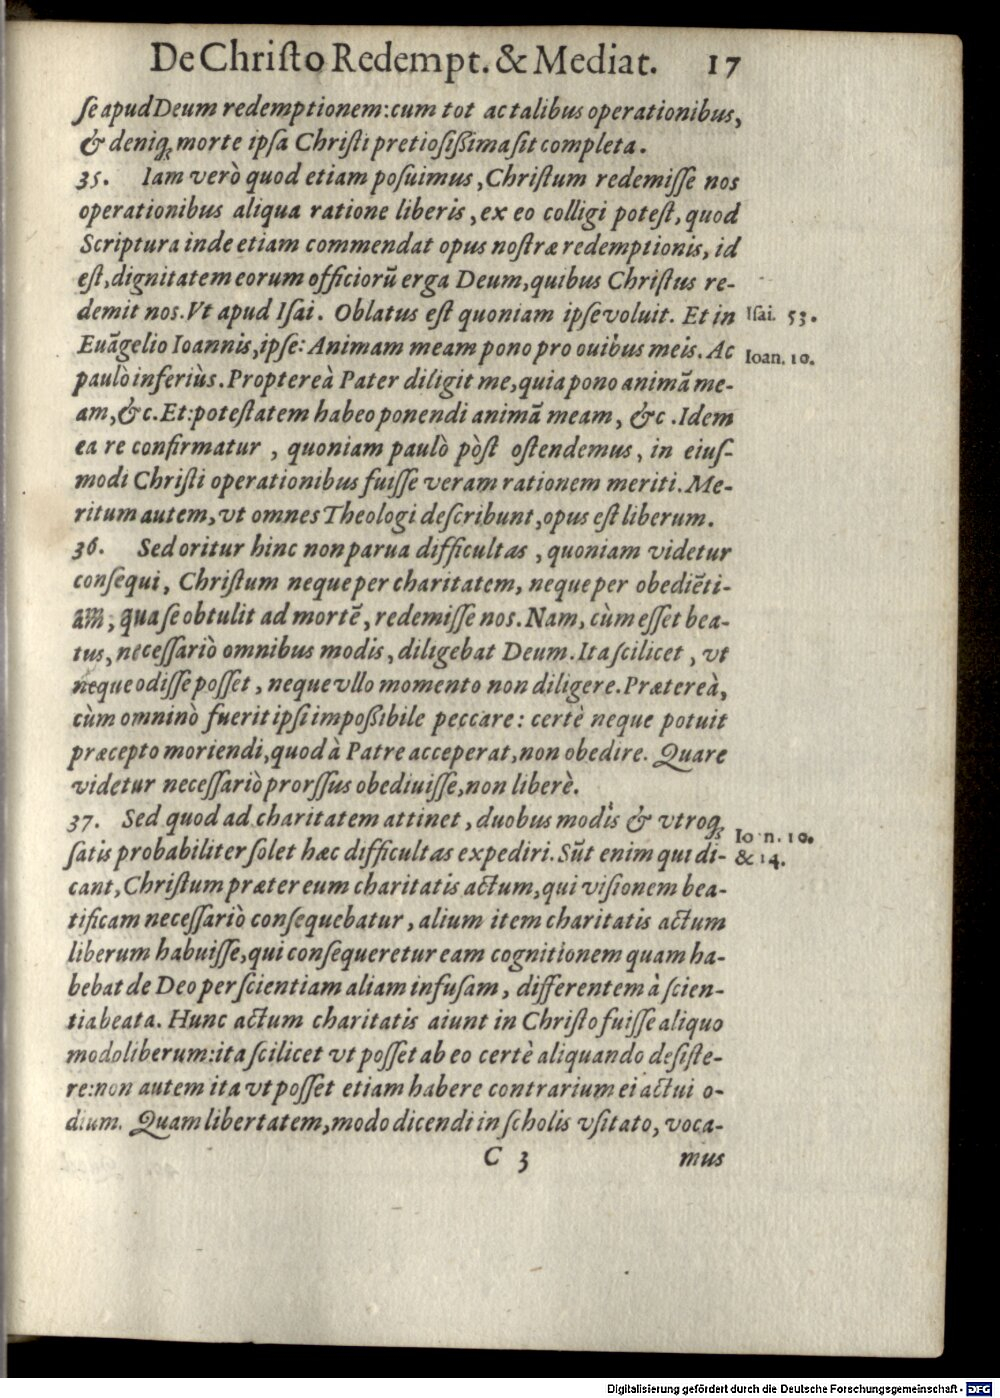 De Christo Redempt. & Mediat. 17
se apud Deum redemptionem: cum tot ac talibus operationibus,
& deniq; morte ipsa Christi pretiosißima sit completa.
35. Iam verò quod etiam posuimus, Christum redemisse nos
operationibus aliqua ratione liberis, ex eo colligi potest, quod
Scriptura inde etiam commendat opus nostræ redemptionis, id
est, dignitatem eorum officiorũ erga Deum, quibus Christus re-
demit nos. Vt apud Isai. Oblatus est quoniam ipse voluit. Et in
Isai. 53.
Euãgelio Ioannis, ipse: Animam meam pono pro ouibus meis. Ac
Ioan. 10.
paulò inferiùs. Proptereà Pater diligit me, quia pono animã me-
am, &c. Et: potestatem habeo ponendi animã meam, &c. Idem
ea re confirmatur, quoniam paulò pòst ostendemus, in eius-
modi Christi operationibus fuisse veram rationem meriti. Me-
ritum autem, vt omnes Theologi describunt, opus est liberum.
36. Sed oritur hinc non parua difficultas, quoniam videtur
consequi, Christum neque per charitatem, neque per obediẽti-
am, qua se obtulit ad mortẽ, redemisse nos. Nam, cùm esset bea-
tus, necessariò omnibus modis, diligebat Deum. Ita scilicet, vt
neque odisse posset, neque vllo momento non diligere. Prætereà,
cùm omninò fuerit ipsi impoßibile peccare: certè neque potuit
præcepto moriendi, quod à Patre acceperat, non obedire. Quare
videtur necessariò prorssus obediuisse, non liberè.
37. Sed quod ad charitatem attinet, duobus modis & vtroq;
Io n. 10.
satis probabiliter solet hæc difficultas expediri. Sũt enim qui di-
& 14.
cant, Christum præter eum charitatis actum, qui visionem bea-
tificam necessariò consequebatur, alium item charitatis actum
liberum habuisse, qui consequeretur eam cognitionem quam ha-
bebat de Deo per scientiam aliam infusam, differentem à scien-
tia beata. Hunc actum charitatis aiunt in Christo fuisse aliquo
modo liberum: ita scilicet vt posset ab eo certè aliquando desiste-
re: non autem ita vt posset etiam habere contrarium ei actui o-
dium. Quam libertatem, modo dicendi in scholis vsitato, voca-
C 3 mus
Digitalisierung gefördert durch die Deutsche Forschungsgemeinschaft - DFG